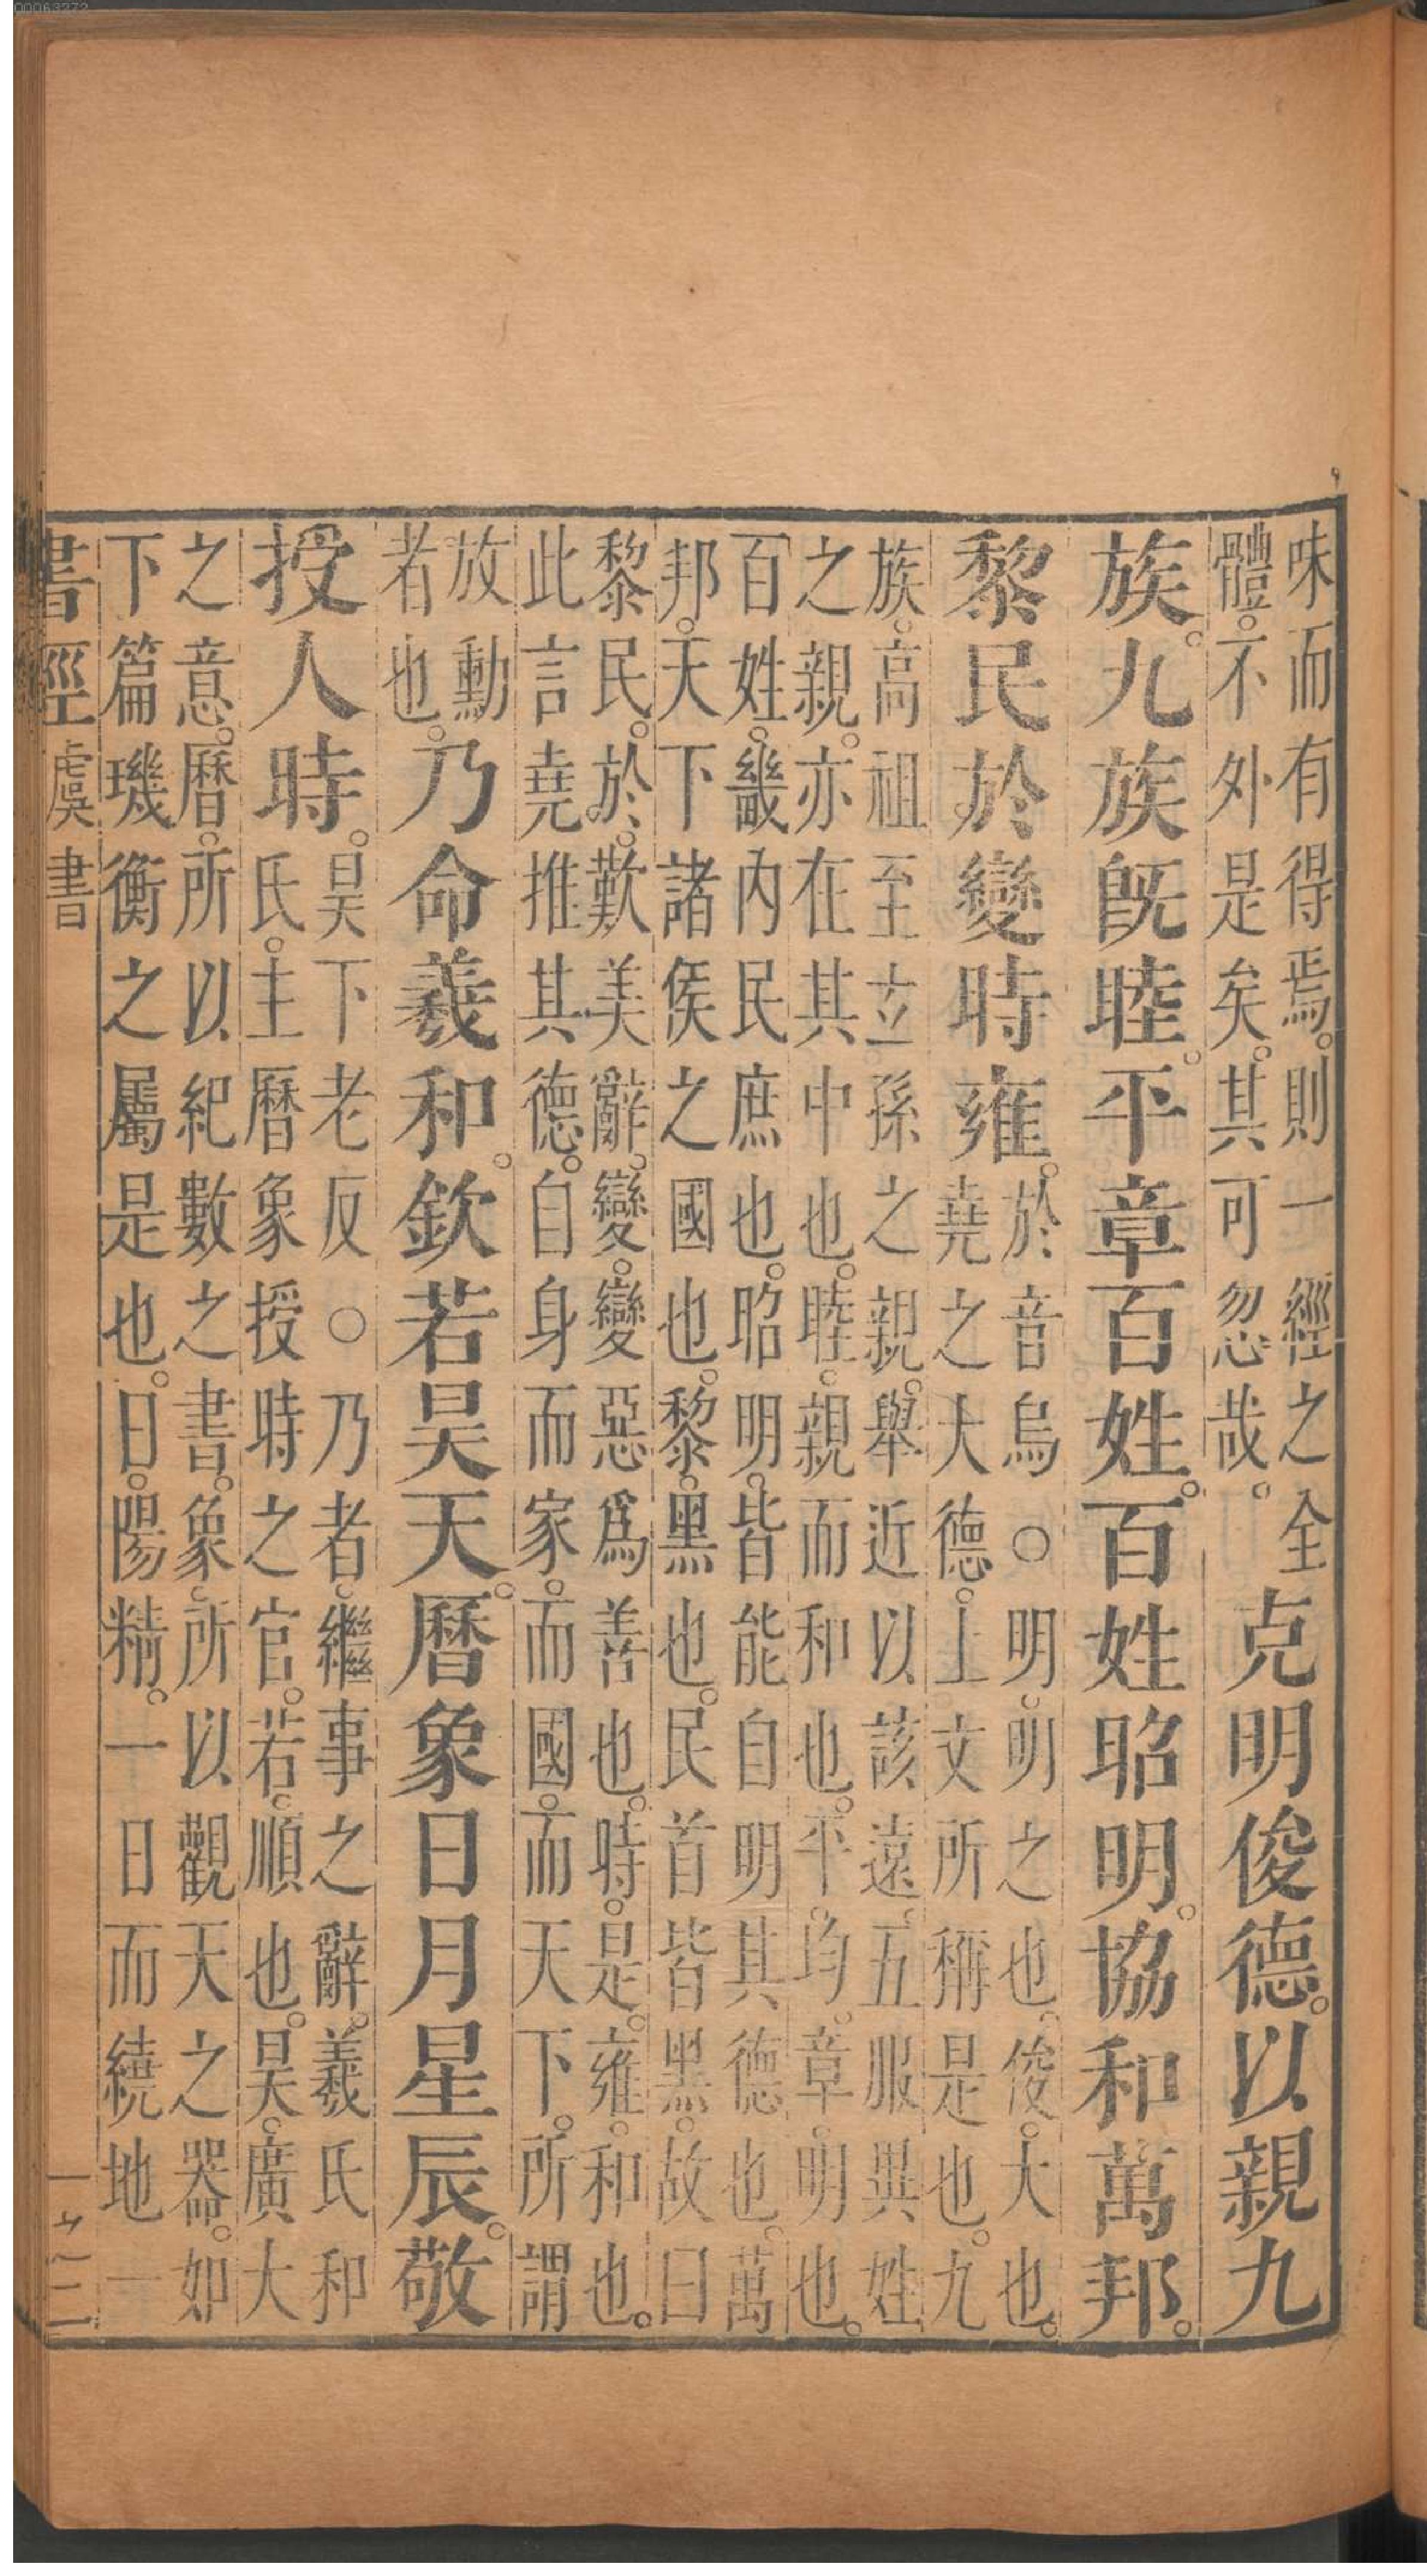 味而有得焉。則一經之全
體。不外是矣。其可忽哉。
克明俊德。以親九
族。九族旣睦。平章百姓。百姓昭明。協和萬邦。
黎民於變時雍。
於音烏○明。明之也。俊。大也。
堯之大德。上文所稱是也。九
族。高祖至玄孫之親。舉近以該遠。五服異姓
之親。亦在其中也。睦。親而和也。平。均。章。明也。
百姓。畿內民庶也。昭明。皆能自明其德也。萬
邦。天下諸侯之國也。黎。黑也。民首皆黑。故曰
黎民。於。歎美辭。變。變惡爲善也。時。是。雍。和也。
此言堯推其德。自身而家。而國。而天下。所謂
放勳
者也。
乃命羲和。欽若昊天。曆象日月星辰。敬
授人時。
昊下老反○乃者。繼事之辭。羲氏和
氏。主曆象授時之官。若。順也。昊。廣大
之意。曆。所以紀數之書。象。所以觀天之器。如
下篇璣衡之屬是也。日。陽精。一日而繞地一
書經 虞書
00063272